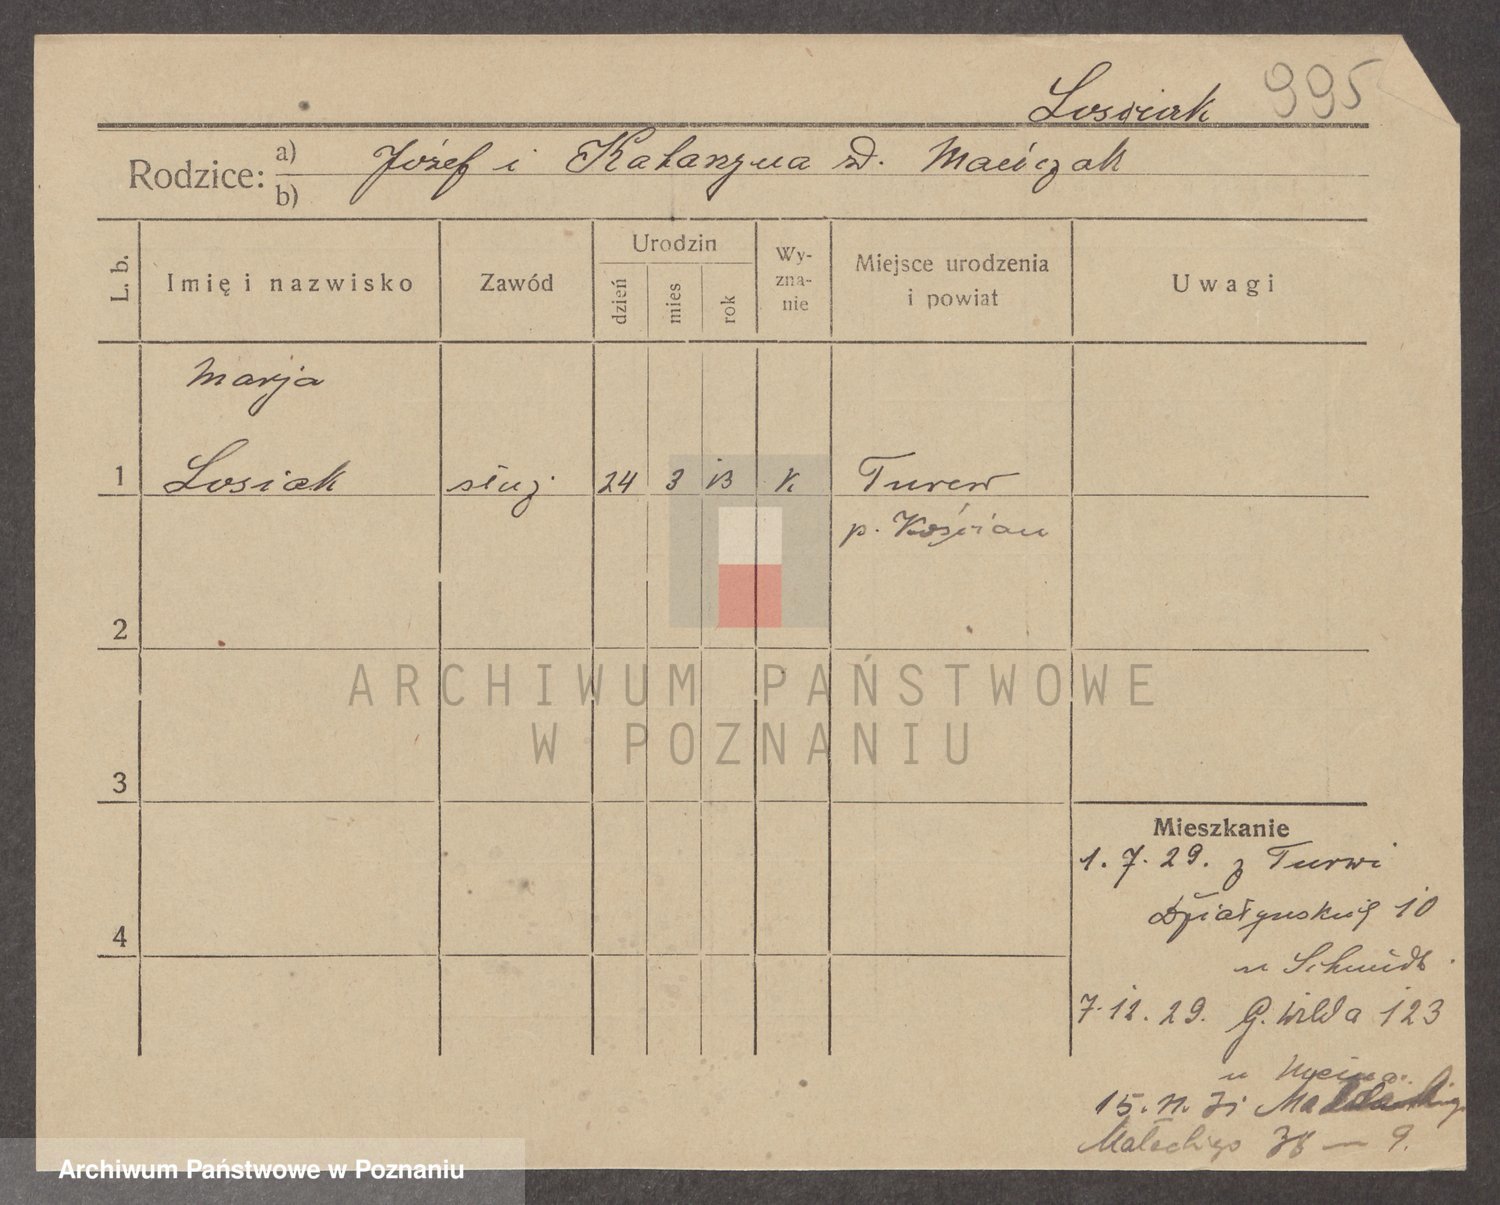 Losiak 995
Rodzice: a) Józef i Katarzyna z d. Maćczak
b)
L. b. Imię i nazwisko Zawód Urodzin dzień mies rok Wy-zna-nie Miejsce urodzenia i powiat Uwagi
Marja
1 Losiak służ. 24 3 13 K Turew
p. Kościan
2
ARCHIWUM PAŃSTWOWE
W POZNANIU
3
4
Mieszkanie
1. 7. 29. z Turwi
Działyńskich 10
u Schmidt.
7. 12. 29. G. Wilda 123
u
15. 11. 31
Małeckiego 38 — 9.
Archiwum Państwowe w Poznaniu